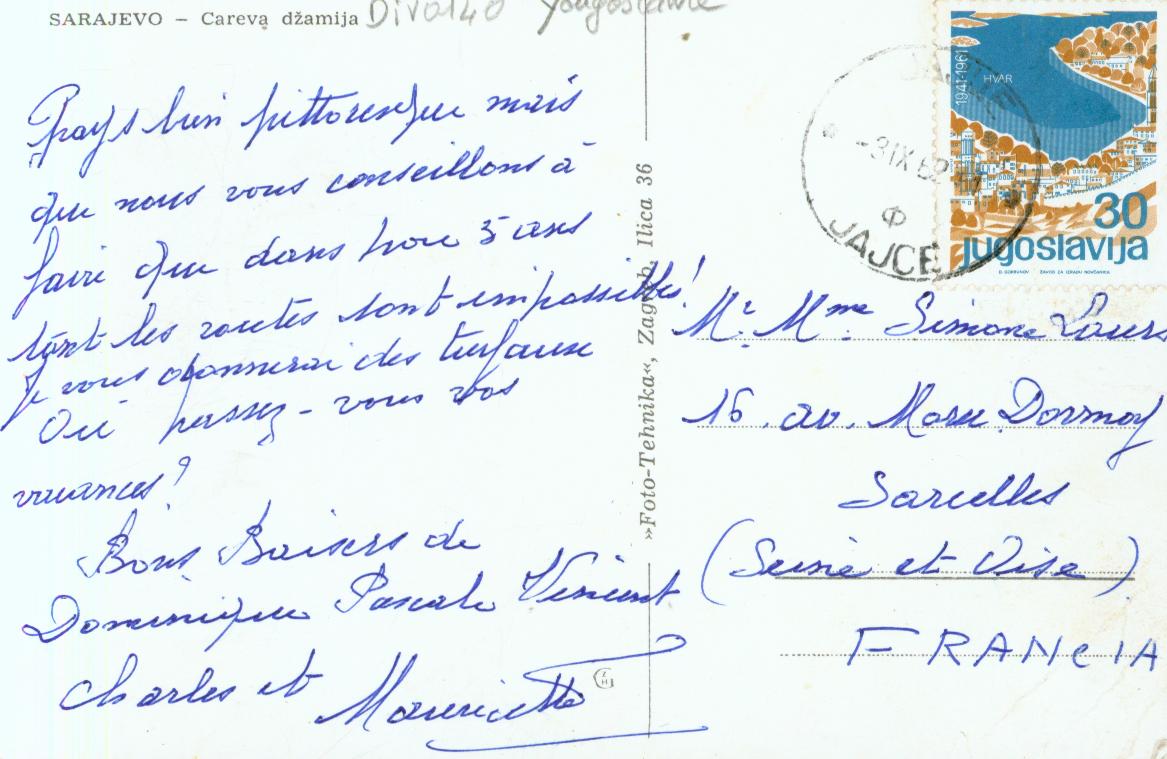 SARAJEVO – Careva džamija Divo140 Yougoslavie
Pays bien pittoresque mais
que nous vous conseillons à
faire que dans hou 5 ans
tant les routes sont impossibles!
Je vous donnerai des
Où passez-vous vos
vacances?
Bons Baisers de
Dominique Pascale Vincent
Charles et Mauricette
»Foto-Tehnika«, Zagreb, Ilica 36
ZH
1941-1961
HVAR
30
jugoslavija
D. GORBUNOV ZAVOD ZA IZRADU NOVČANICA
-3 IX 62
JAJCE
Mr. Mme. Simone Louis
16. av. Marx Dormoy
Sarcelles
(Seine et Oise)
FRANCIA